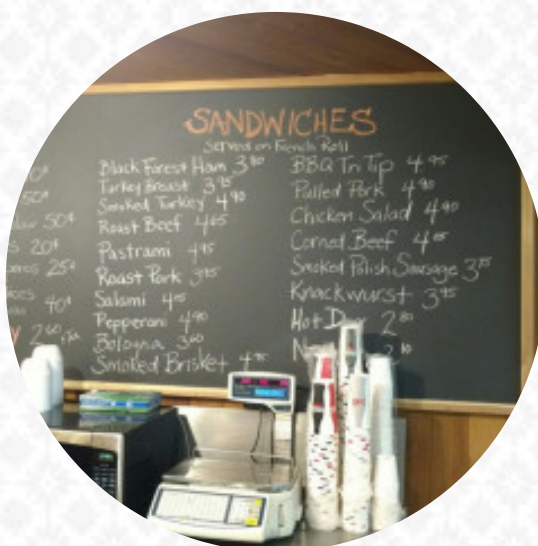 SANDWICHES
Served on French Roll
50¢
50¢
20¢
25¢
40¢
2 60
Black Forest Ham 3 90
Turkey Breast 3 95
Smoked Turkey 4 90
Roast Beef 4 65
Pastrami 4 95
Roast Pork 3 95
Salami
Pepperoni 4 90
Bologna 3 60
Smoked Brisket 4 95
BBQ Tri Tip 4 95
Pulled Pork 4 90
Chicken Salad 4 90
Corned Beef
Smoked Polish Sausage 3 75
Knackwurst 3 95
Hot 2 80